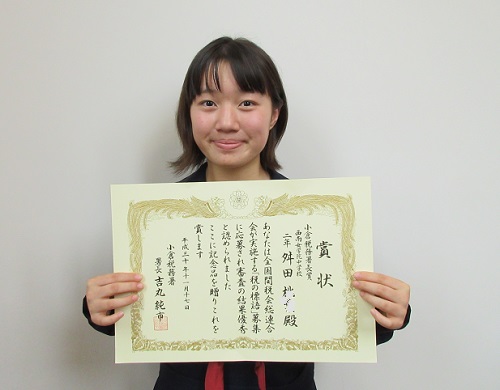 賞状
小倉税務署長賞
西南女学院中学校
二年 舛田 桃 殿
あなたは全国間税会総連合
会が実施する「税の標語」募集
に応募され審査の結果優秀
と認められました
ここに記念品を贈りこれを
賞します
平成三十年十一月十七日
小倉税務署
署長 吉丸純市